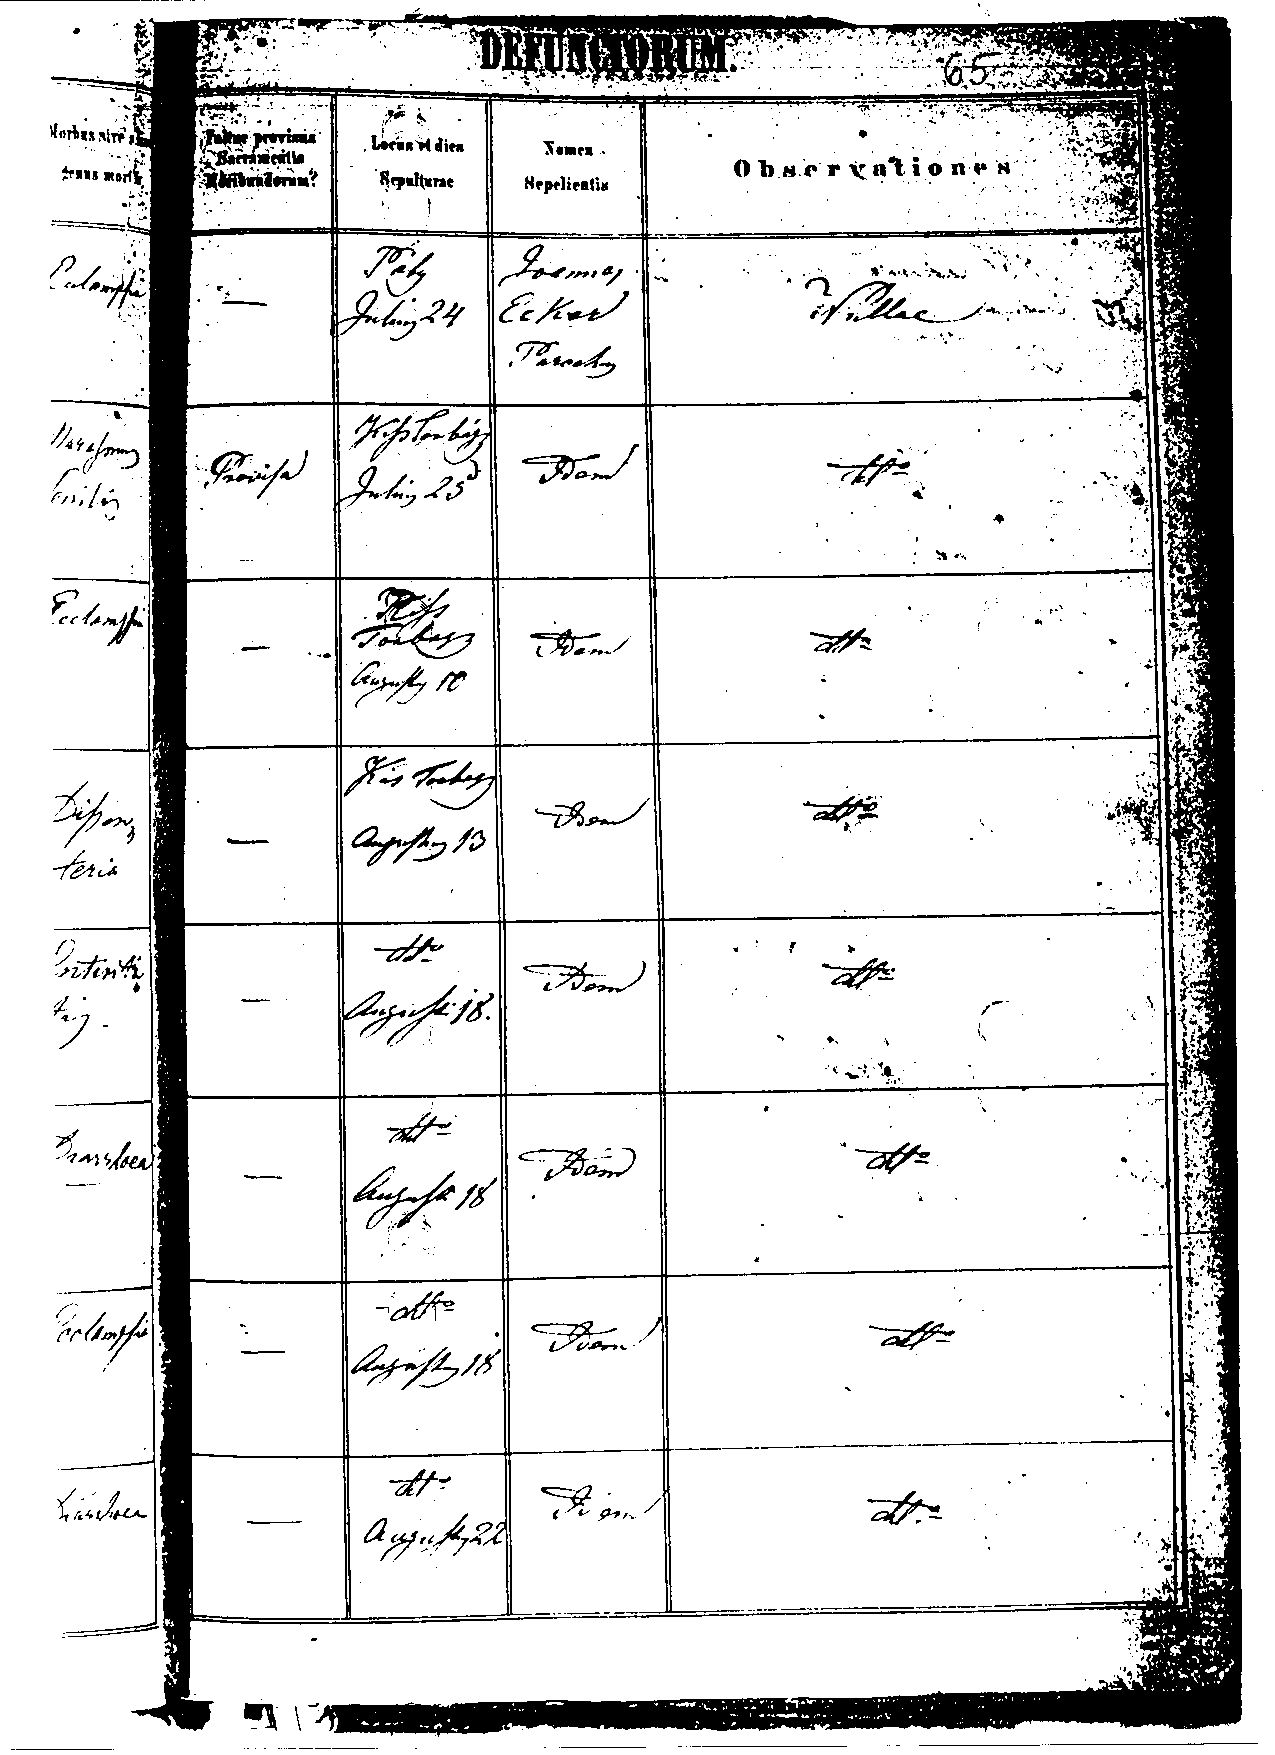 DEFUNCTORUM.
65
Morbus sive
genus mortis
Fuitne provisus
Sacramentis
Moribundorum?
Locus et dies
Sepulturae
Nomen
Sepelientis
Observationes
Eclampsia
—
Páty
Julius 24
Joannes
Eckar
Parochus
Nullae
Marasmus
senilis
Provisa
Kis Torbágy
Julius 25
Idem
dtto
Ecclampsia
—
Kiss
Torbagy
Augustus 10
Idem
dtto
Dissen
teria
—
Kis Torbagy
Augustus 13
Idem
dtto
—
dtto
Augusti 18.
Idem
dtto
Diarrhoea
—
dtto
Augusti 18
Idem
dtto
Ecclampsia
—
dtto
Augustus 18
Idem
dtto
Diarrhoea
—
dtto
Augustus 22
Idem
dtto